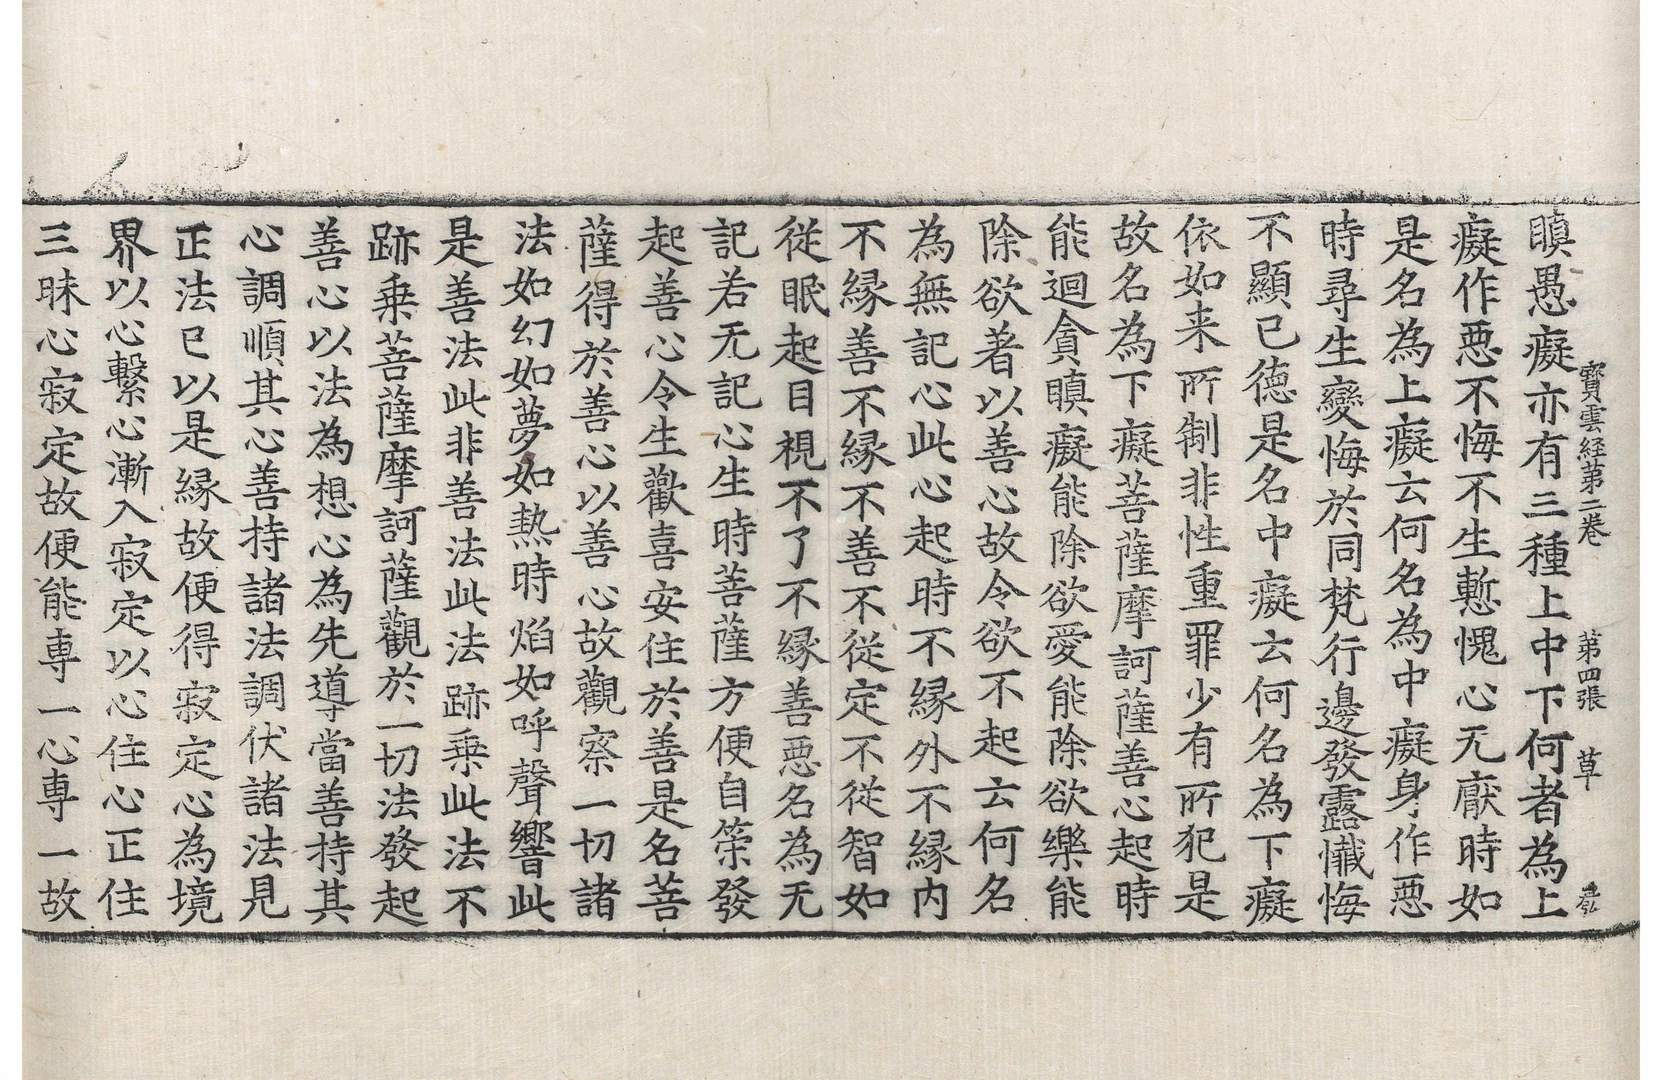 寳雲経第二卷　第四張　草
瞋愚癡亦有三種上中下何者為上
癡作惡不悔不生慙愧心无厭時如
是名為上癡云何名為中癡身作惡
時尋生變悔於同梵行邊發露懺悔
不顯已德是名中癡云何名為下癡
依如来所制非性重罪少有所犯是
故名為下癡菩薩摩訶薩善心起時
能迴貪瞋癡能除欲愛能除欲樂能
除欲著以善心故令欲不起云何名
為無記心此心起時不縁外不縁内
不縁善不縁不善不從定不從智如
從眠起目視不了不縁善惡名為无
記若无記心生時菩薩方便自策發
起善心令生歡喜安住於善是名菩
薩得於善心以善心故觀察一切諸
法如幻如夢如熱時焰如呼聲響此
是善法此非善法此法跡乗此法不
跡乗菩薩摩訶薩觀於一切法發起
善心以法為想心為先導當善持其
心調順其心善持諸法調伏諸法見
正法已以是縁故便得寂定心為境
界以心繫心漸入寂定以心住心正住
三昧心寂定故便能専一心専一故